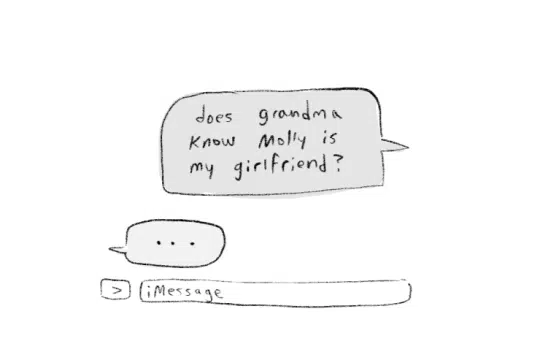 does grandma
know Molly is
my girlfriend?
...
> iMessage